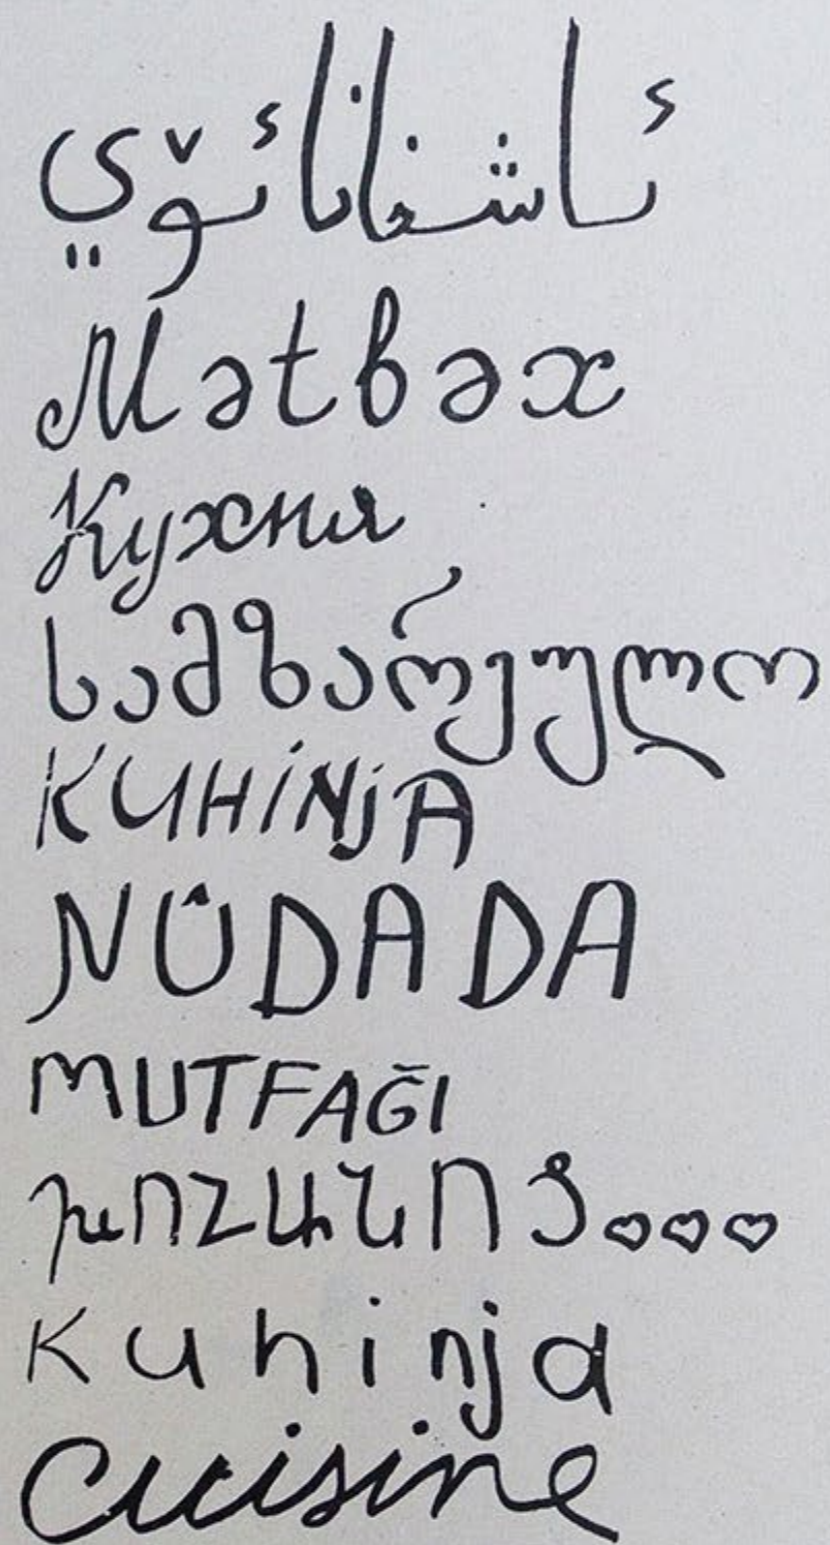 ئاشخانائۆي
Mətbəx
Кухня
სამზარეულო
KUHiNjA
NÛDADA
MUTFAĞI
ԽՈՀԱՆՈՑ♡♡♡
Kuhinja
Cuisine